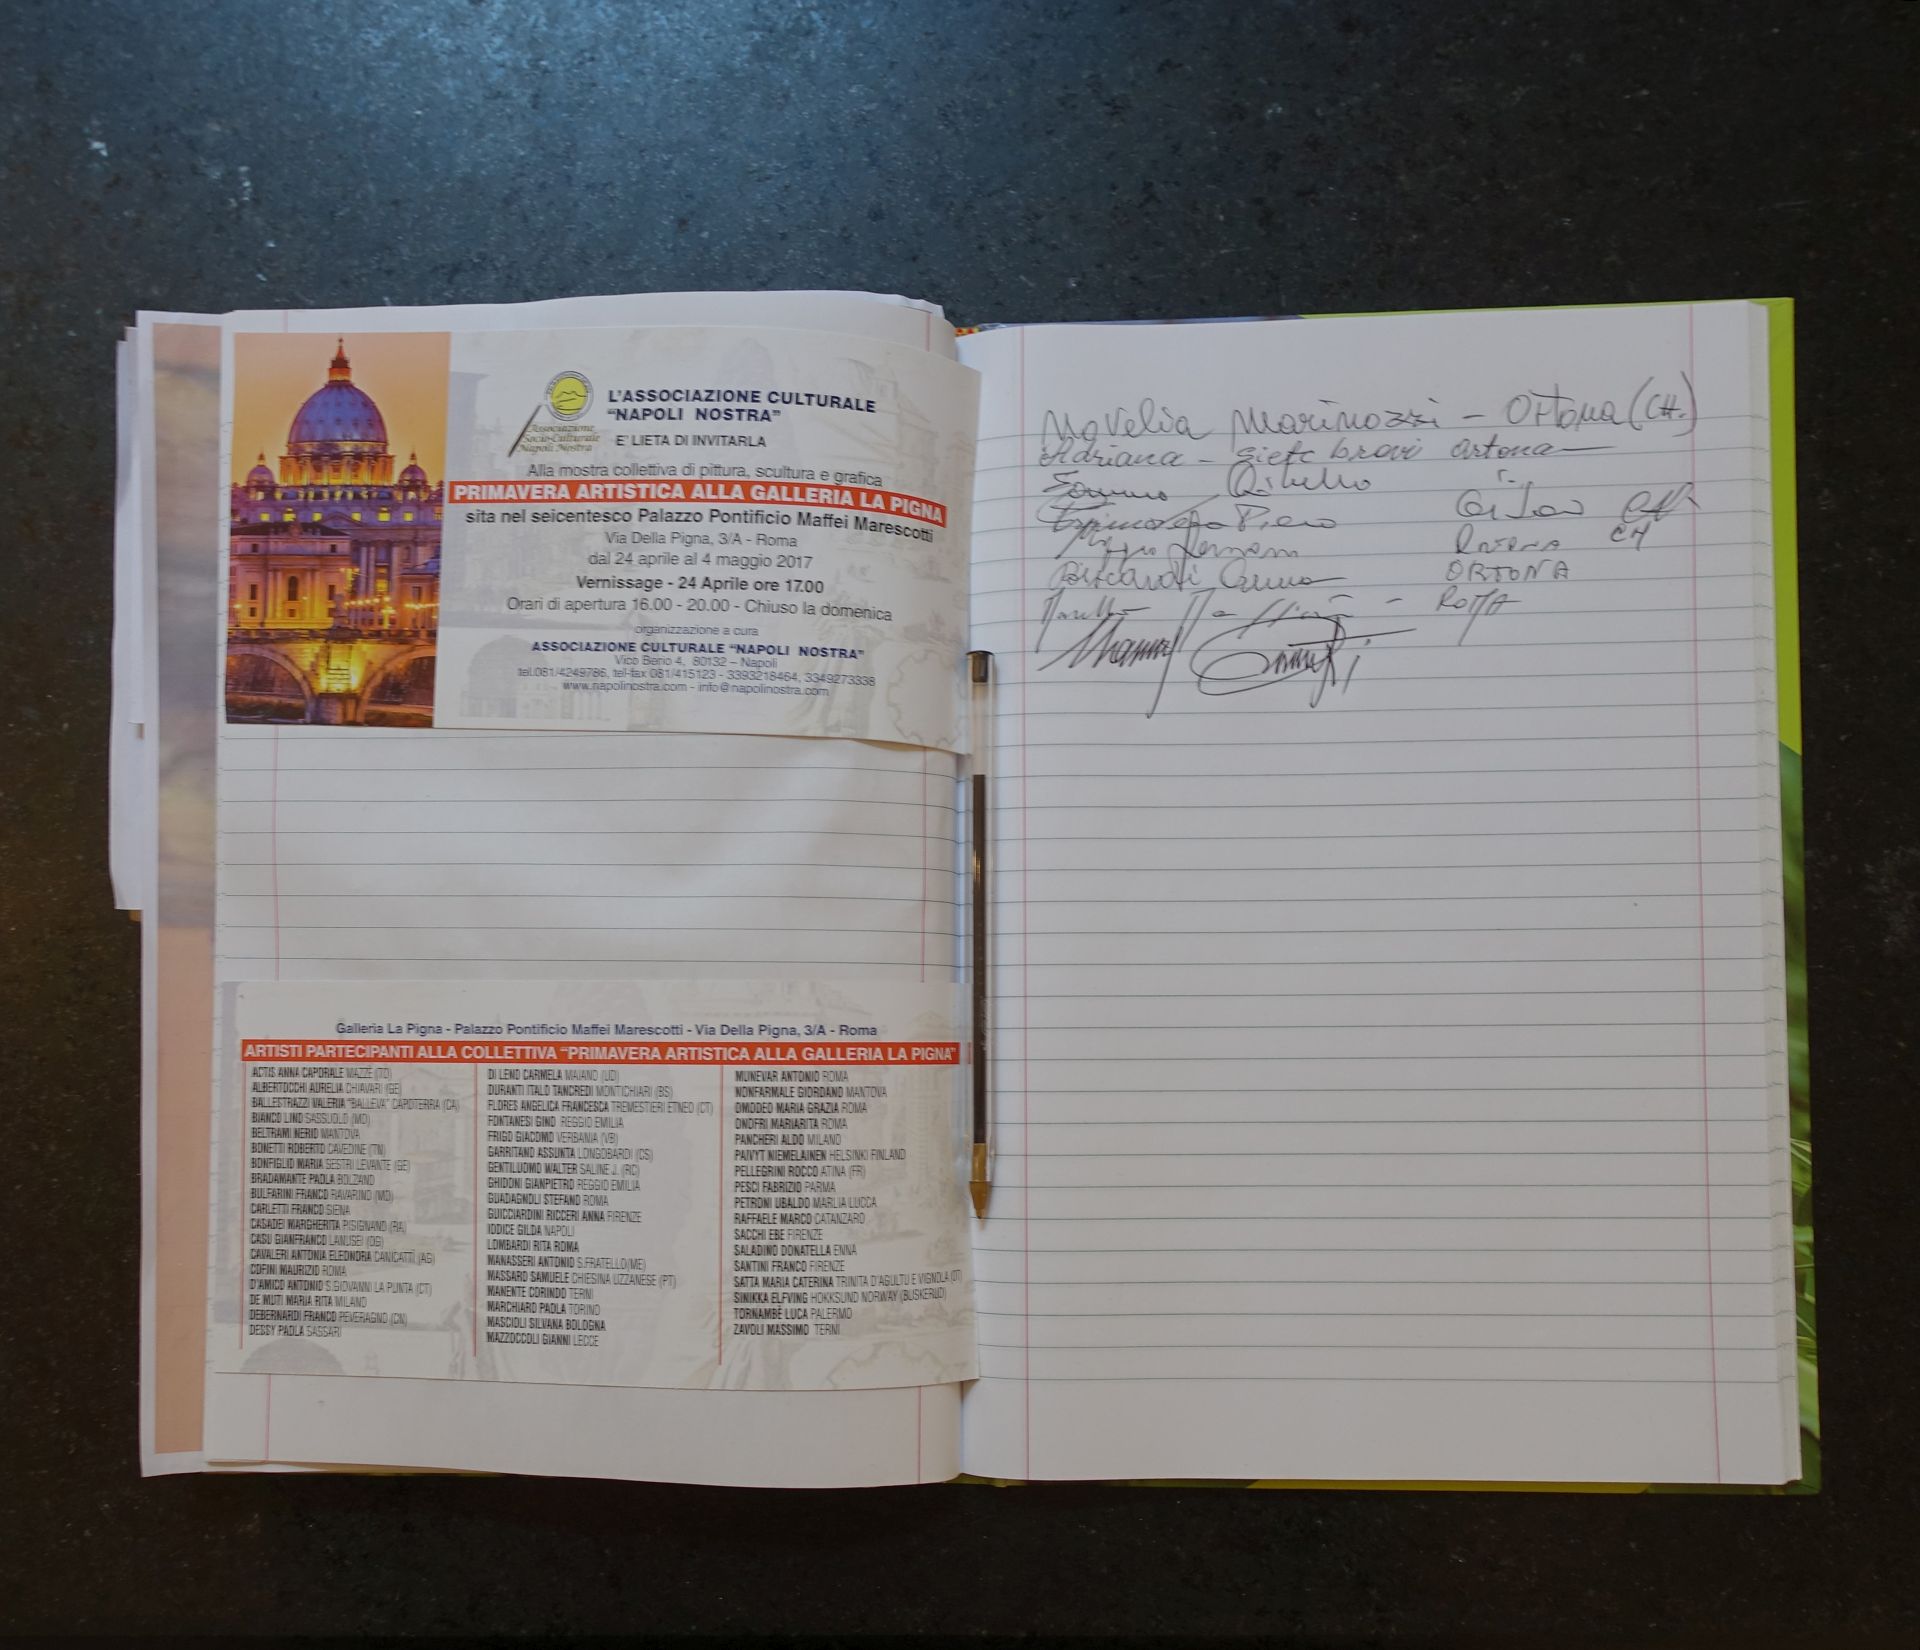 Associazione
Socio-Culturale
Napoli Nostra
L'ASSOCIAZIONE CULTURALE
"NAPOLI NOSTRA"
E' LIETA DI INVITARLA
Alla mostra collettiva di pittura, scultura e grafica
PRIMAVERA ARTISTICA ALLA GALLERIA LA PIGNA
sita nel seicentesco Palazzo Pontificio Maffei Marescotti
Via Della Pigna, 3/A - Roma
dal 24 aprile al 4 maggio 2017
Vernissage - 24 Aprile ore 17.00
Orari di apertura 16.00 - 20.00 - Chiuso la domenica
organizzazione a cura
ASSOCIAZIONE CULTURALE "NAPOLI NOSTRA"
Vico Berio 4, 80132 – Napoli
tel.081/4249786, tel-fax 081/415123 - 3393218464, 3349273338
www.napolinostra.com - info@napolinostra.com
Galleria La Pigna - Palazzo Pontificio Maffei Marescotti - Via Della Pigna, 3/A - Roma
ARTISTI PARTECIPANTI ALLA COLLETTIVA "PRIMAVERA ARTISTICA ALLA GALLERIA LA PIGNA"
ACTIS ANNA CAPORALE MAZZÈ (TO)
ALBERTOCCHI AURELIA CHIAVARI (GE)
BALLESTRAZZI VALERIA "BALLEVA" CAPOTERRA (CA)
BIANCO LINO SASSUOLO (MO)
BELTRAMI NERIO MANTOVA
BONETTI ROBERTO CAVEDINE (TN)
BONFIGLIO MARIA SESTRI LEVANTE (GE)
BRADAMANTE PAOLA BOLZANO
BULFARINI FRANCO RAVARINO (MO)
CARLETTI FRANCO SIENA
CASADEI MARGHERITA PISIGNANO (RA)
CASU GIANFRANCO LANUSEI (OG)
CAVALERI ANTONIA ELEONORA CANICATTÌ (AG)
COFINI MAURIZIO ROMA
D'AMICO ANTONIO S.GIOVANNI LA PUNTA (CT)
DE MUTI MARIA RITA MILANO
DEBERNARDI FRANCO PEVERAGNO (CN)
DESSY PAOLA SASSARI
DI LENO CARMELA MAIANO (UD)
DURANTI ITALO TANCREDI MONTICHIARI (BS)
FLORES ANGELICA FRANCESCA TREMESTIERI ETNEO (CT)
FONTANESI GINO REGGIO EMILIA
FRIGO GIACOMO VERBANIA (VB)
GARRITANO ASSUNTA LONGOBARDI (CS)
GENTILUOMO WALTER SALINE J. (RC)
GHIDONI GIANPIETRO REGGIO EMILIA
GUADAGNOLI STEFANO ROMA
GUICCIARDINI RICCERI ANNA FIRENZE
IODICE GILDA NAPOLI
LOMBARDI RITA ROMA
MANASSERI ANTONIO S.FRATELLO(ME)
MASSARO SAMUELE CHIESINA UZZANESE (PT)
MANENTE CORINDO TERNI
MARCHIARO PAOLA TORINO
MASCIOLI SILVANA BOLOGNA
MAZZOCCOLI GIANNI LECCE
MUNEVAR ANTONIO ROMA
NONFARMALE GIORDANO MANTOVA
OMODEO MARIA GRAZIA ROMA
ONOFRI MARIARITA ROMA
PANCHERI ALDO MILANO
PAIVYT NIEMELAINEN HELSINKI FINLAND
PELLEGRINI ROCCO ATINA (FR)
PESCI FABRIZIO PARMA
PETRONI UBALDO MARLIA LUCCA
RAFFAELE MARCO CATANZARO
SACCHI EBE FIRENZE
SALADINO DONATELLA ENNA
SANTINI FRANCO FIRENZE
SATTA MARIA CATERINA TRINITA D'AGULTU E VIGNOLA (OT)
SINIKKA ELFVING HOKKSUND NORWAY (BUSKERUD)
TORNAMBÈ LUCA PALERMO
ZAVOLI MASSIMO TERNI
Marinozzi - Ortona (CH.)
Adriana - siete bravi ortona
Piero
CH
ORTONA
- ROMA